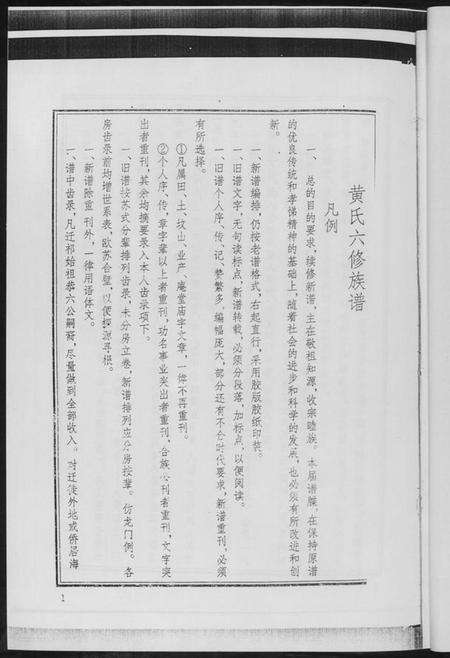 黄氏六修族谱
凡例
一、总的目的要求，续修新谱，主在敬祖知源，收宗睦族。本届谱牒，在保持原谱
的优良传统和孝悌精神的基础上，随着社会的进步和科学的发展，也必须有所改进和创
新。
一、新谱编排，仍按老谱格式，右起直行，采用胶版胶纸印装。
一、旧谱文字，无句读标点，新谱转载，必须分段落，加标点，以便阅读。
一、旧谱个人序、传、记、赞繁多，编幅庞大，部分还有不合时代要求，新谱重刊，必须
有所选择。
①凡属田、土、坟山、业产、庵堂庙宇文章，一律不再重刊。
②个人序、传，章字辈以上者重刊，功名事业突出者重刊，合族公刊者重刊，文字突
出者重刊，其余均摘要录入本人齿录项下。
一、旧谱按苏式分辈排列齿录，未分房立卷，新谱排列应分房按辈。仿龙门例。各
房齿录前均增世系表，欧苏合璧，以便探源寻根。
一、新谱除重刊外，一律用语体文。
一、谱中齿录，凡迁祁始祖恭六公嗣裔，尽量做到全部收入。对迁徙外地或侨居海
1